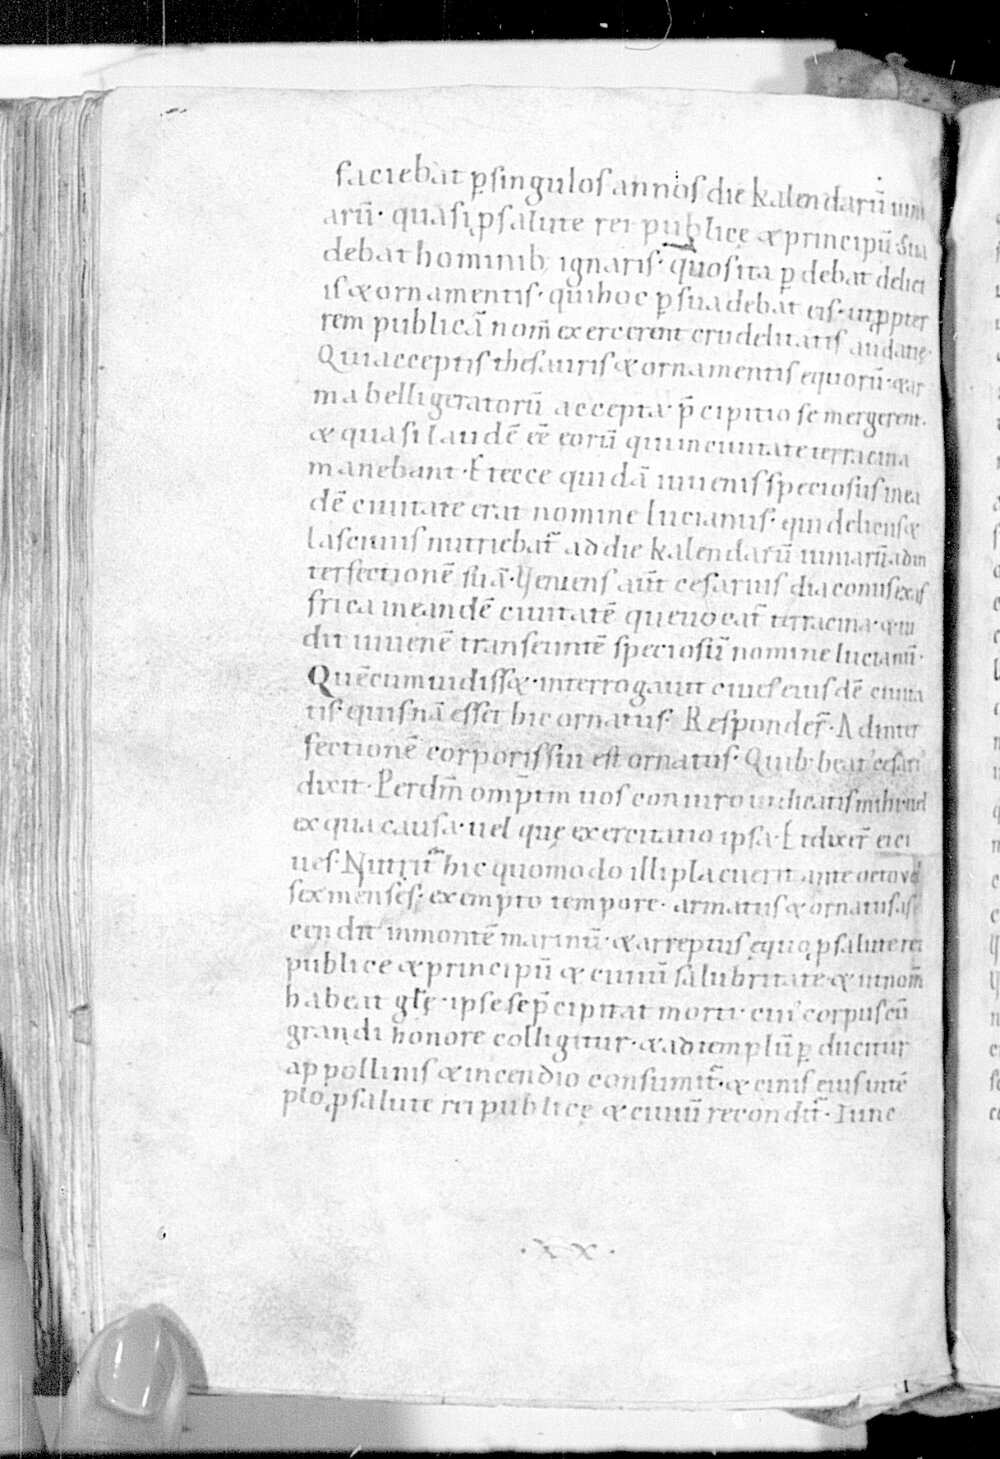 faciebat ꝑ singulos annos die kalendarū ianu
arū· quasi ꝓ salute rei publicę & principū· Sua
debat hominib; ignaris· quos ita ꝑdebat delici
is & ornamentis· qui hoc ꝑsuadebat eis· ut ꝓpter
rem publicā nom̄ exercerent crudelitatis audatię·
Qui acceptis thesauris & ornamentis equorū· & ar
ma belligeratorū accepta· p̄cipitio se mergerent·
& quasi laudē eē eorū qui in ciuitate terracina
manebant· Et ecce quidā iuuenis speciosus in ea
dē ciuitate erat nomine lucianus· qui deliciis &
lasciuiis nutriebat̄ ad die kalendarū ianuariū ad in
terfectionē suā· Veniens aūt cesarius diaconus ex af
frica in eandē ciuitatē que uocat̄ terracina· & ui
dit iuuenē transeuntē speciosū nomine lucianū·
Quē cum uidiss&· interrogauit ciues eiusdē ciuita
tis· quisnā esset hic ornatus· Responder̄· Ad inter
fectionē corporis sui est ornatus· Quib· beat' cesari'
dixit· Per dn̄m omp̄tm uos coniuro indicatis mihi uel
ex qua causa· uel quę exercitatio ipsa· Et dixer̄ ei ci
ues· Nutrit̄ hic quomodo illi placuerit ante octo vel
sex menses· exempto tempore· armatus & ornatus as
cendit in montē marinū· & arreptus equo ꝓ salute rei
publice & principū & ciuiū salubritate· & ut nom̄
habeat glę· ipse se p̄cipitat morti· cui' corpuscū
grandi honore colligitur· & ad templū ꝑducitur
appollinis & incendio consumit̄· & cinis eius in tē
plo ꝓ salute rei publicę & ciuiū recondit̄· Tunc
·XX·